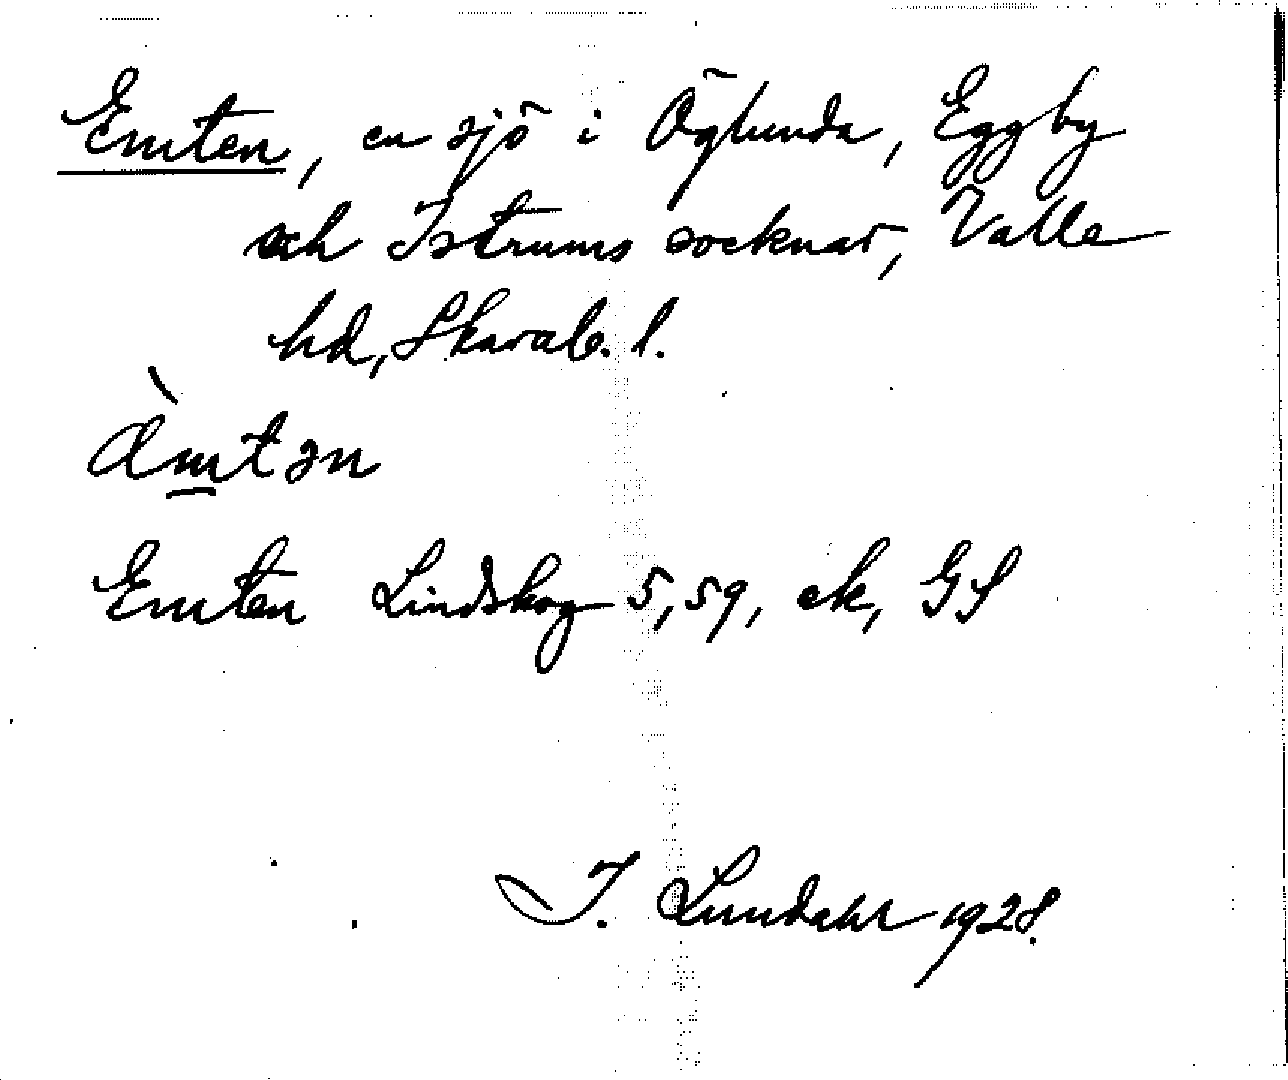 Emten, en sjö i Öglunda, Eggby
och Istrums socknar, Valle
hd, Skarab. l.
æ̀mtən
Emten Lindskog 5,59, ek, GS
I. Lundahl 1928.